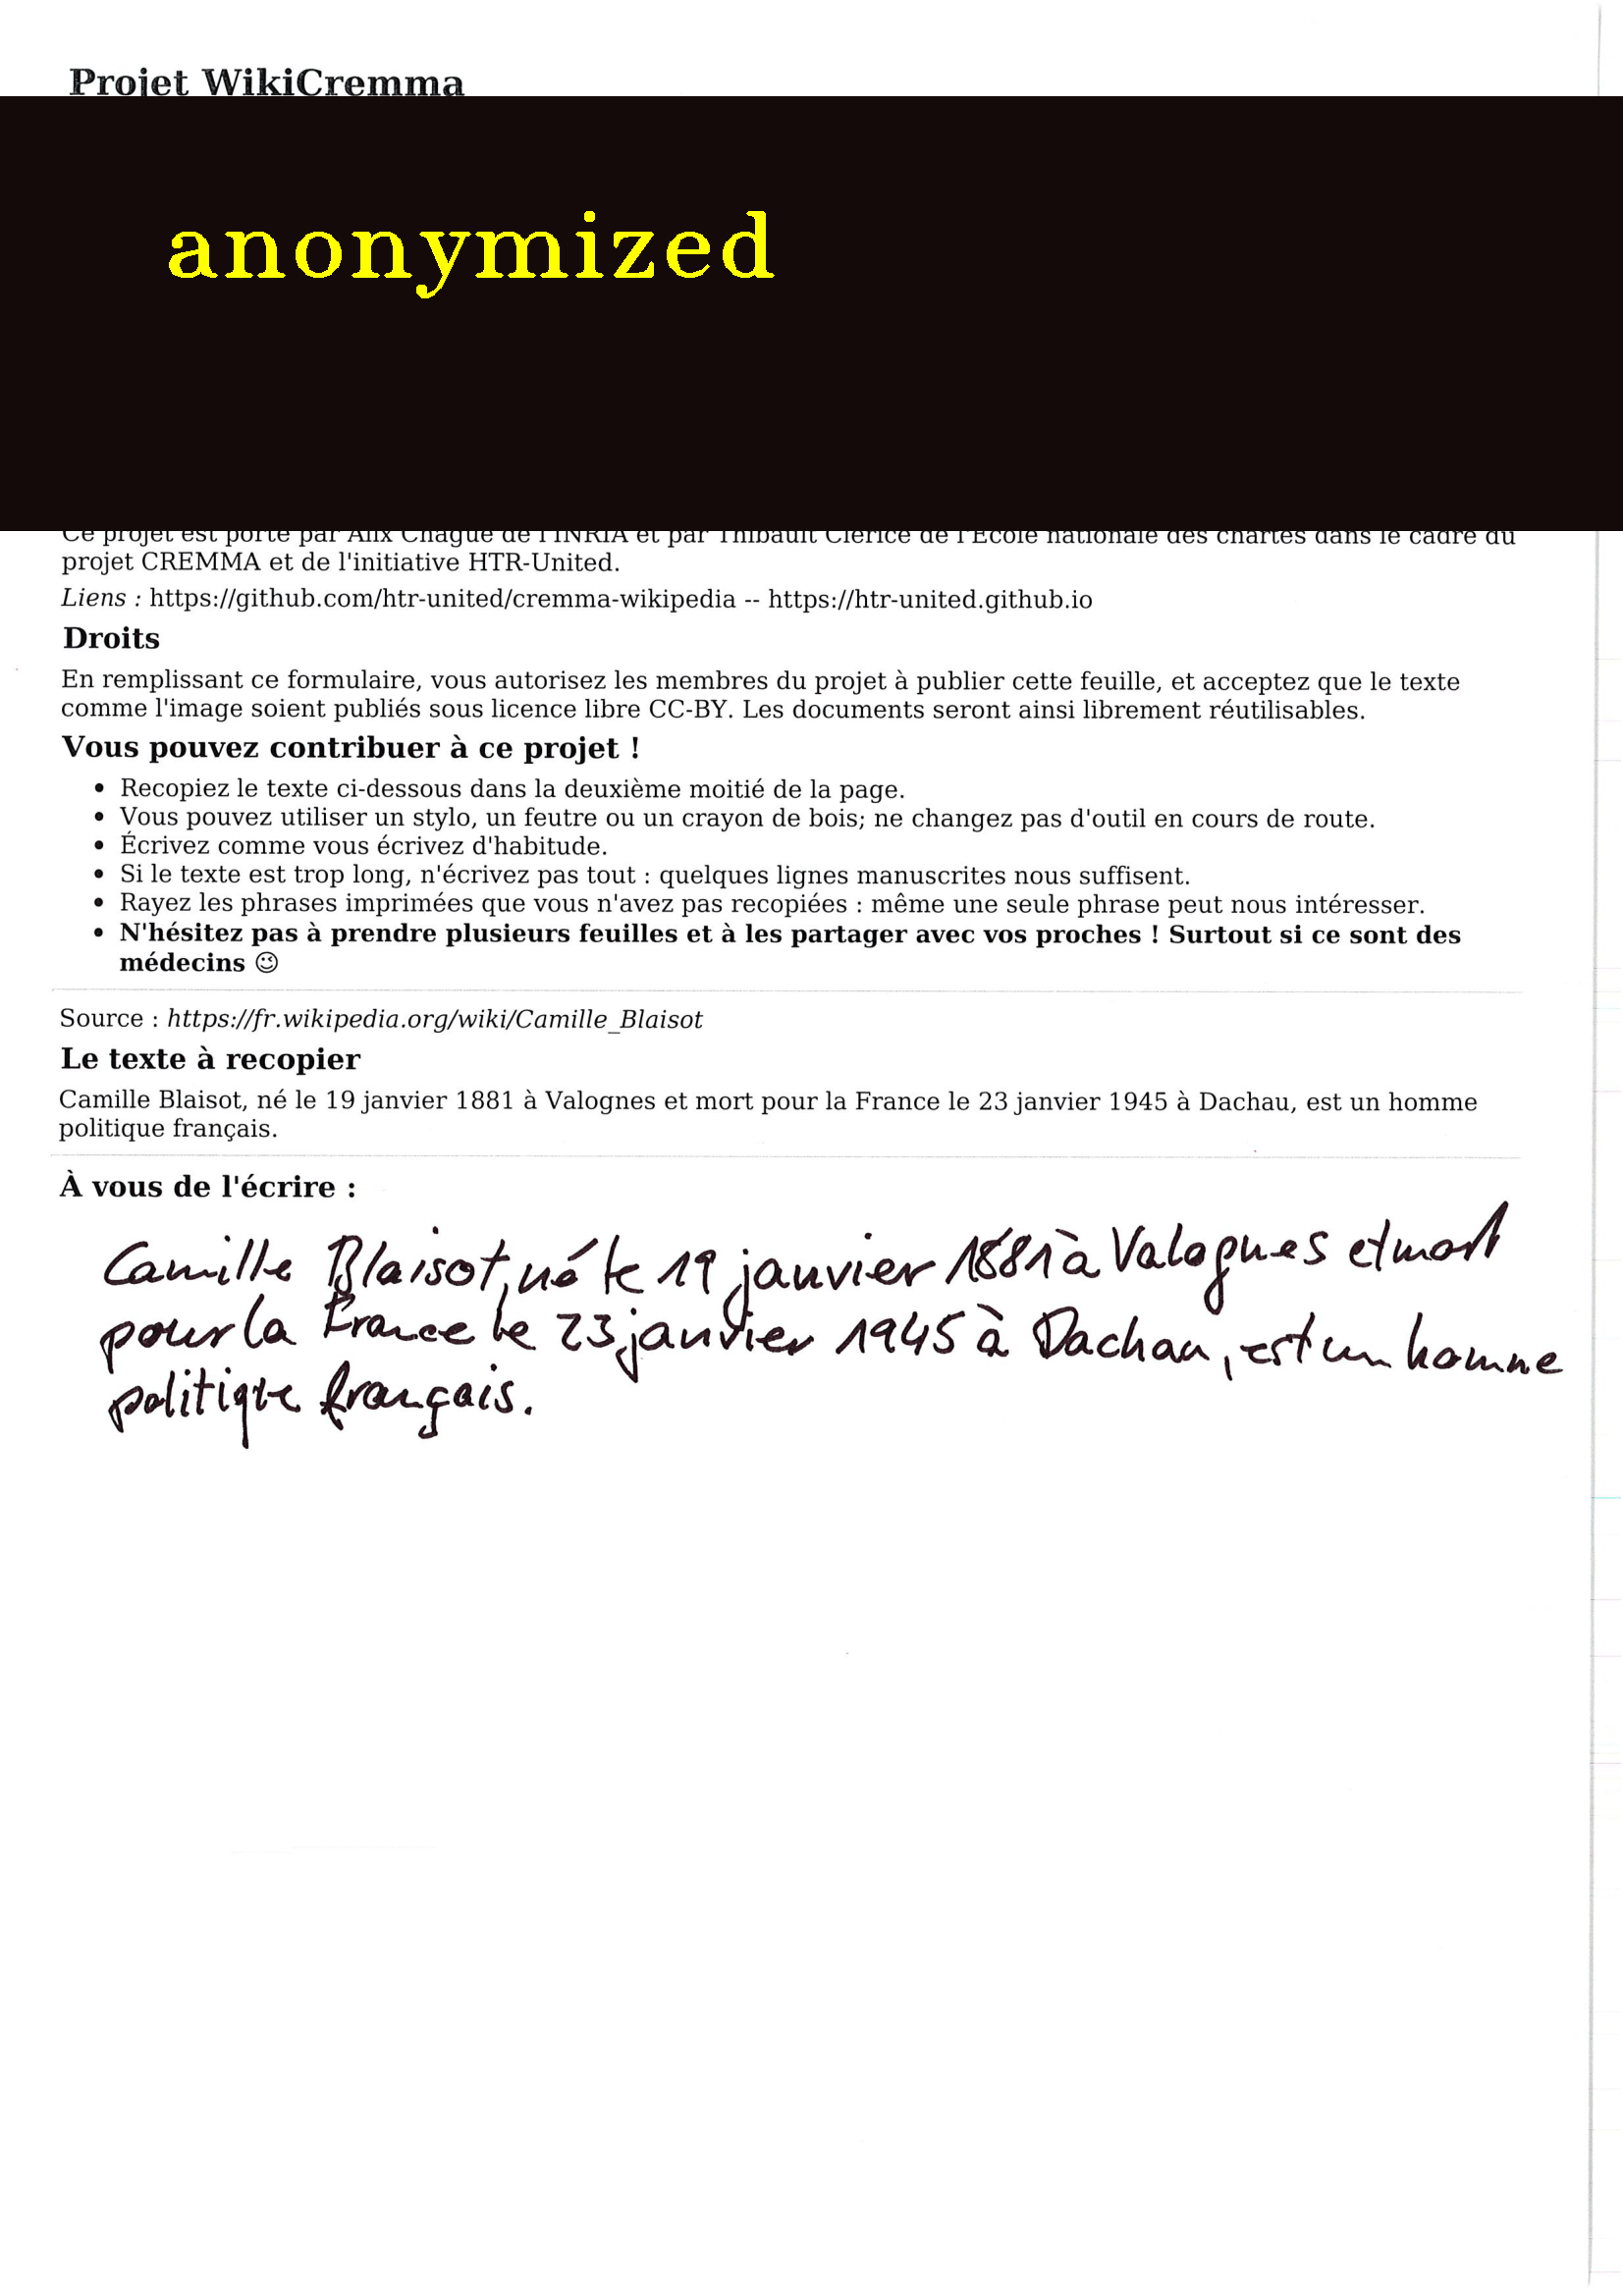 Projet WikiCremma
anonymized
Ce projet est porté par Alix Chagué de l'INRIA et par Thibault Clérice de l'École nationale des chartes dans le cadre du
projet CREMMA et de l'initiative HTR-United.
Liens : https://github.com/htr-united/cremma-wikipedia -- https://htr-united.github.io
Droits
En remplissant ce formulaire, vous autorisez les membres du projet à publier cette feuille, et acceptez que le texte
comme l'image soient publiés sous licence libre CC-BY. Les documents seront ainsi librement réutilisables.
Vous pouvez contribuer à ce projet !
• Recopiez le texte ci-dessous dans la deuxième moitié de la page.
• Vous pouvez utiliser un stylo, un feutre ou un crayon de bois; ne changez pas d'outil en cours de route.
• Écrivez comme vous écrivez d'habitude.
• Si le texte est trop long, n'écrivez pas tout : quelques lignes manuscrites nous suffisent.
• Rayez les phrases imprimées que vous n'avez pas recopiées : même une seule phrase peut nous intéresser.
• N'hésitez pas à prendre plusieurs feuilles et à les partager avec vos proches ! Surtout si ce sont des
médecins 😉
Source : https://fr.wikipedia.org/wiki/Camille_Blaisot
Le texte à recopier
Camille Blaisot, né le 19 janvier 1881 à Valognes et mort pour la France le 23 janvier 1945 à Dachau, est un homme
politique français.
À vous de l'écrire :
Camille Blaisot, né le 19 janvier 1881 à Valognes et mort
pour la France le 23 janvier 1945 à Dachau, est un homme
politique français.